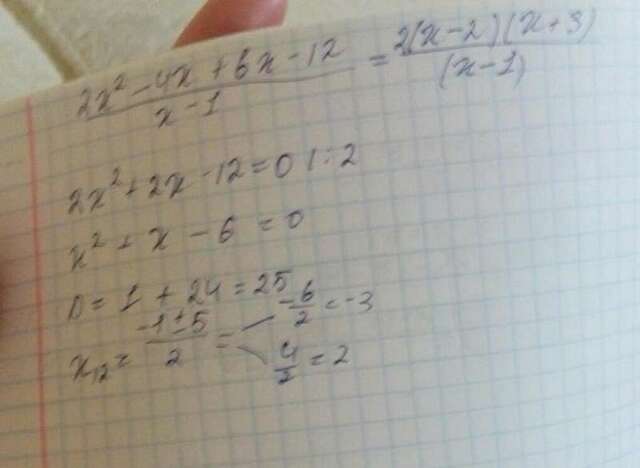 (2x² - 4x + 6x - 12)/(x - 1) = 2(x - 2)(x + 3)/(x - 1)
2x² + 2x - 12 = 0 | : 2
x² + x - 6 = 0
D = 1 + 24 = 25
x₁₂ = (-1 ± 5)/2 = -6/2 = -3
4/2 = 2